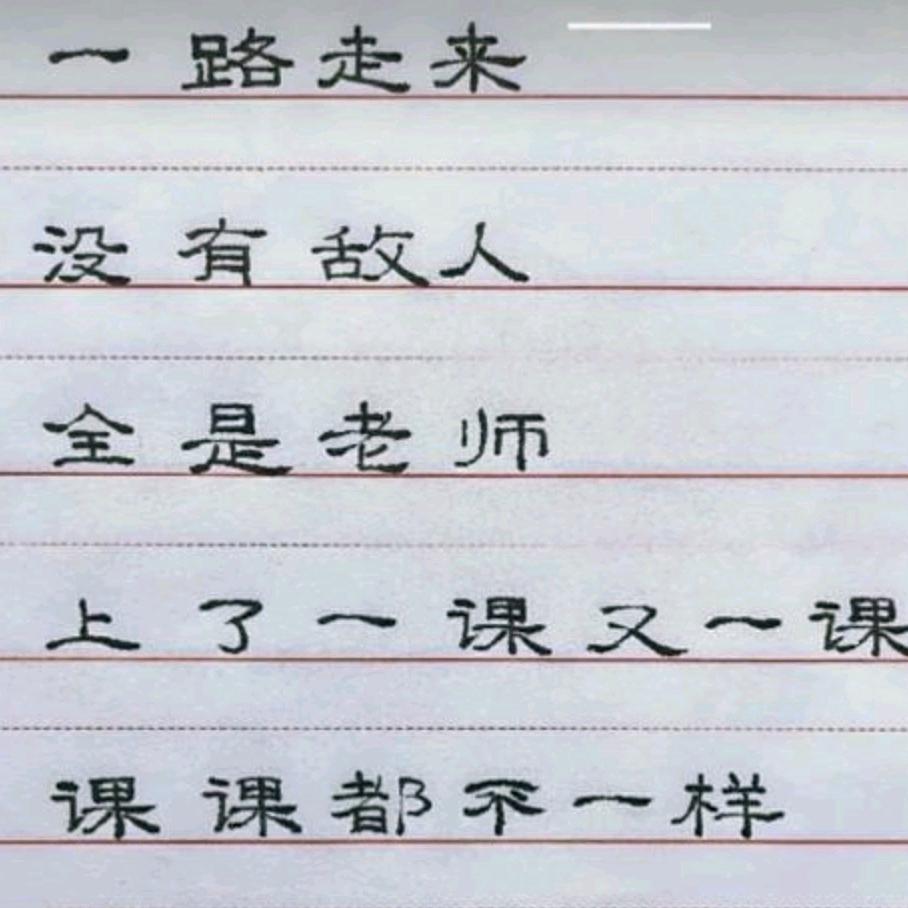 一路走来
没有敌人
全是老师
上了一课又一课
课课都不一样